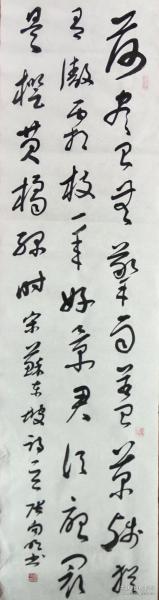 荷尽已无擎雨盖菊残犹
有傲霜枝一年好景君须记最
是橙黄橘绿时宋苏东坡诗一首